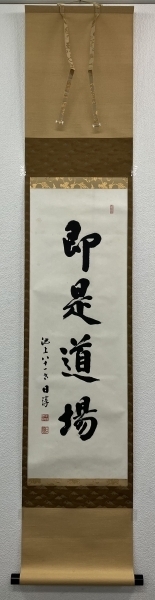 即是道場
池上八十一世日淳